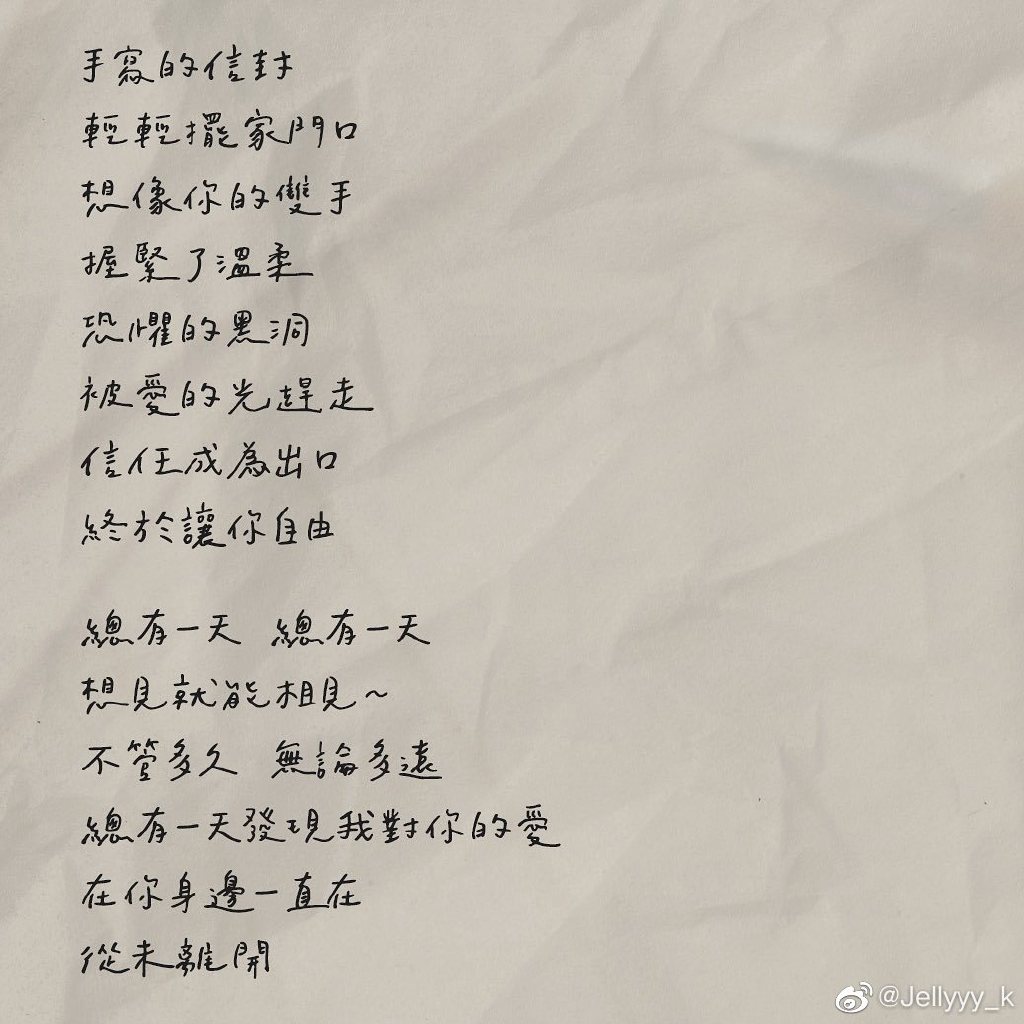 手寫的信封
輕輕擺家門口
想像你的雙手
握緊了溫柔
恐懼的黑洞
被愛的光趕走
信任成為出口
終於讓你自由
總有一天 總有一天
想見就能相見~
不管多久 無論多遠
總有一天發現我對你的愛
在你身邊一直在
從未離開
@Jellyyy_k